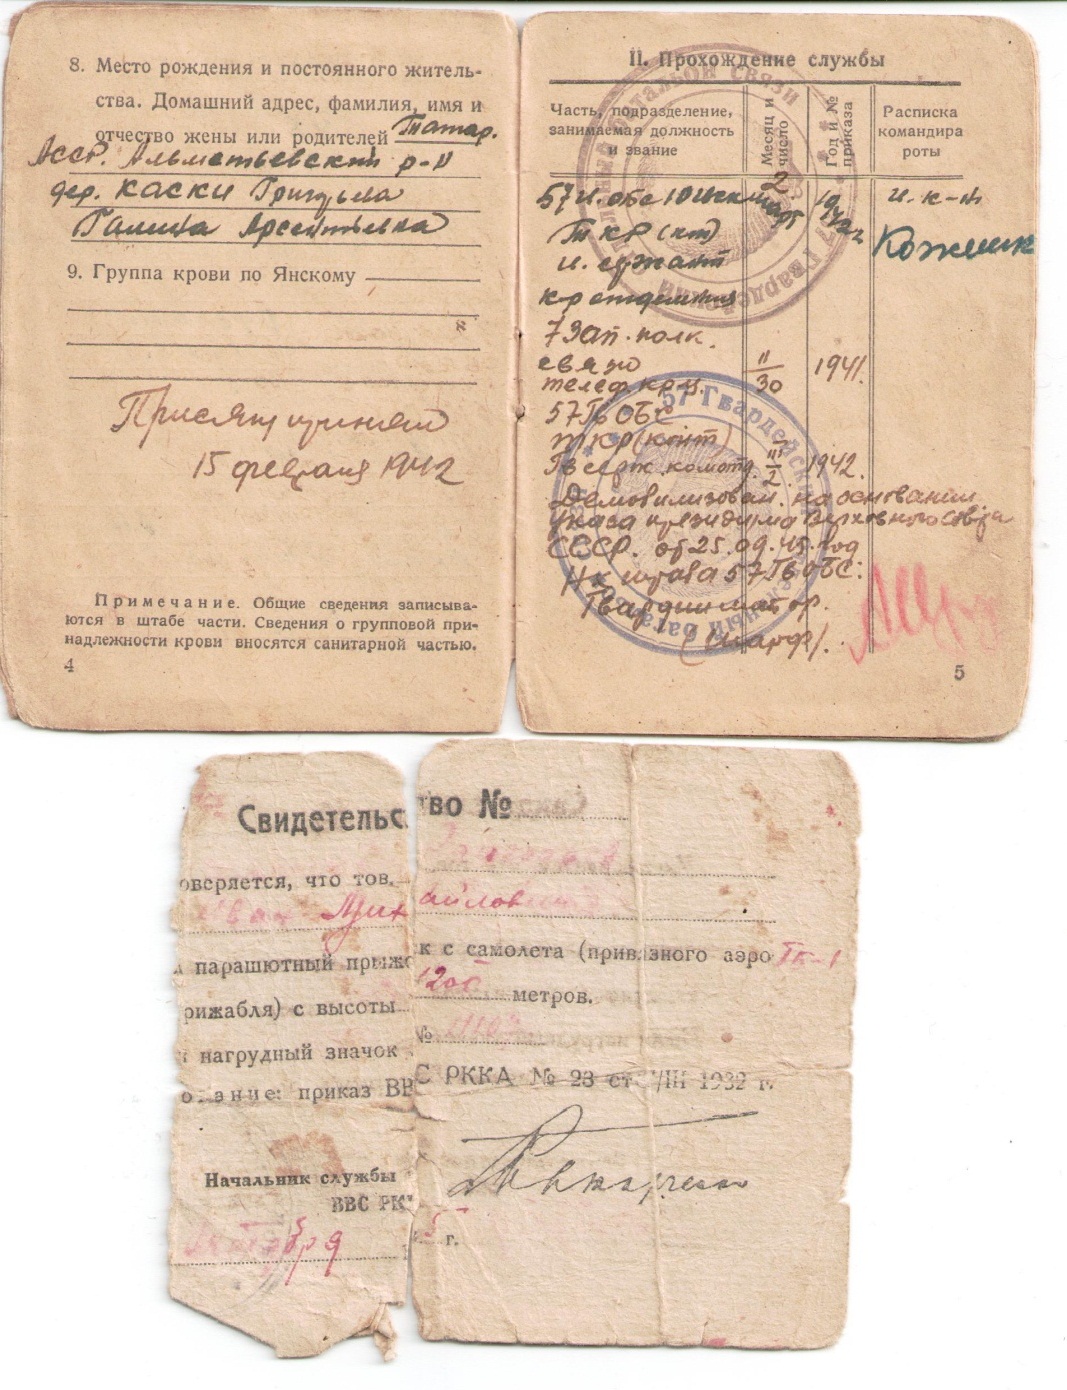 8. Место рождения и постоянного житель-
ства. Домашний адрес, фамилия, имя и
отчество жены или родителей Татар.
АССР. Альметьевский р-н
дер. Каски
Галина Арсентьевна
9. Группа крови по Янскому
Присягу принял
15 февраля 1942
Примечание. Общие сведения записыва-
ются в штабе части. Сведения о групповой при-
надлежности крови вносятся санитарной частью.
4
II. Прохождение службы
Часть, подразделение,
занимаемая должность
и звание
Месяц и
число
Год и №
приказа
Расписка
командира
роты
57
2 март
1942 г
к-т
сержант
ком отделения
7 Зап. полк.
связи
телеф.
11/30
1941.
57 Гв ОБС
ТКР (конт)
Гв серж. ком отд.
III/2
1942.
Демобилизован. на основании
Указа президиума Верховного Совета
СССР. от 25.09.45. год
Нк штаба 57 Гв ОБС:
Гвардии
57 Гвардейский
5
Свидетельство №
оверяется, что тов.
Иван Михайлович
парашютный прыжок с самолета (привязного аэро
рижабля) с высоты 1200 метров.
нагрудный значок №
ование: приказ ВВС РККА № 23 от VIII 1932 г.
Начальник службы
ВВС РК
октября 5 г.